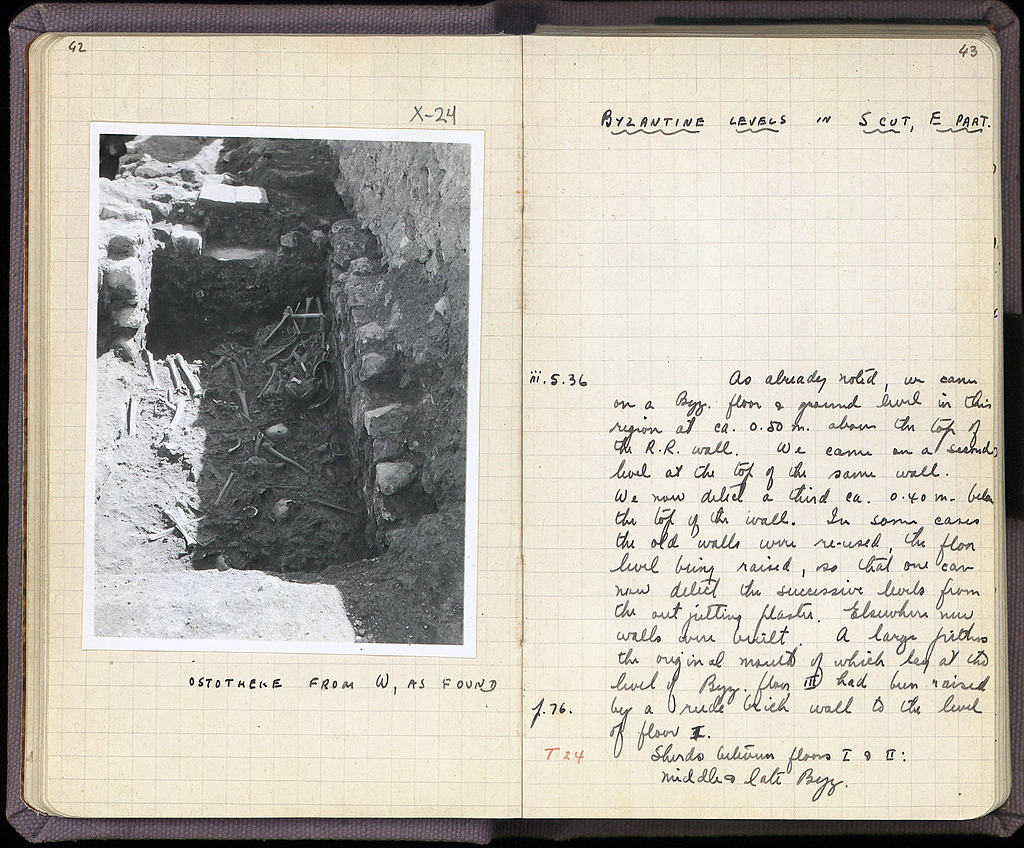 42
X-24
OSTOTHEKE FROM W, AS FOUND
43
BYZANTINE LEVELS IN S CUT, E PART.
iii.5.36 As already noted, we came
on a Byz. floor & ground level in this
region at ca. 0.50 m. above the top of
the R.R. wall. We came on a second
level at the top of the same wall.
We now detect a third ca. 0.40 m. below
the top of the wall. In some cases
the old walls were re-used, the floor
level being raised, so that one can
now detect the successive levels from
the out jutting plaster. Elsewhere new
walls were built. A large pithos
the original mouth of which lay at the
level of Byz. floor III had been raised
f.76. by a rude brick wall to the level
of floor I.
T 24 Sherds between floors I & II:
middle & late Byz.